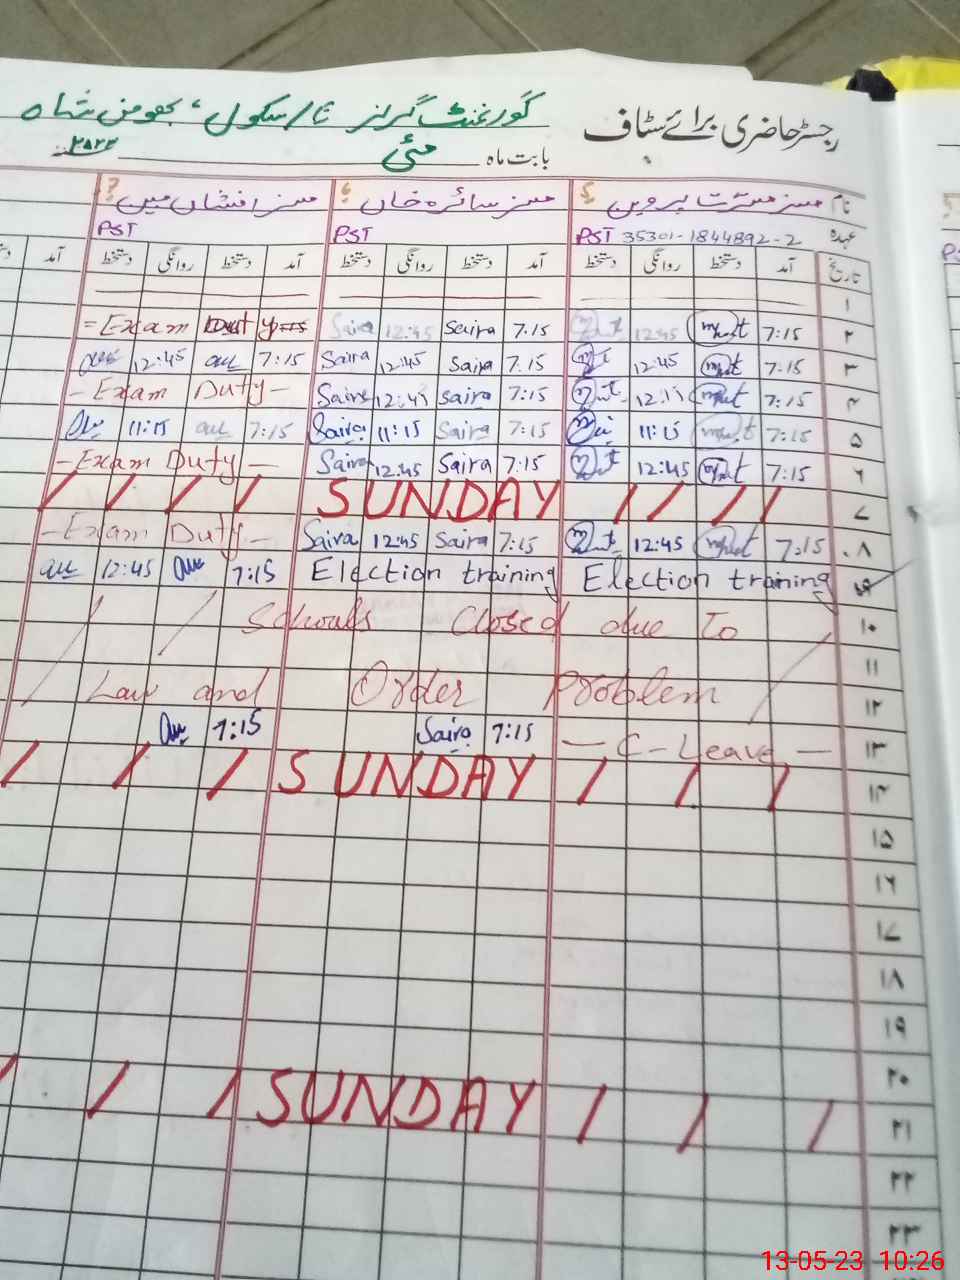 رجسٹر حاضری برائے سٹاف گورنمنٹ گرلز سکول،
بابت ماہ مئی ۲۰۲۳
نام مسز مسرت پروین 5 مسز سائرہ خان 6 مسز افشاں 7
عہدہ PST 35301-1844892-2 PST PST
تاریخ آمد دستخط روانگی دستخط آمد دستخط روانگی دستخط آمد دستخط روانگی دستخط آمد
۱
= Exam Duty Saira 12:45 Saira 7.15 12:45 7:15 ۲
12:45 7:15 Saira 12:45 Saira 7.15 12:45 7:15 ۳
- Exam Duty - Saira 12:45 Saira 7:15 7:15 ۴
11:15 7:15 Saira 11:15 Saira 7:15 11:15 7:15 ۵
- Exam Duty - Saira 12:45 Saira 7:15 12:45 7:15 ۶
SUNDAY ۷
- Exam Duty - Saira 12:45 Saira 7:15 12:45 7:15 ۸
12:45 7:15 Election training Election training ۹
Schools Closed due to ۱۰
۱۱
Law and Order Problem ۱۲
7:15 Saira 7:15 - C-Leave - ۱۳
SUNDAY ۱۴
۱۵
۱۶
۱۷
۱۸
۱۹
۲۰
SUNDAY ۲۱
۲۲
۲۳
13-05-23 10:26